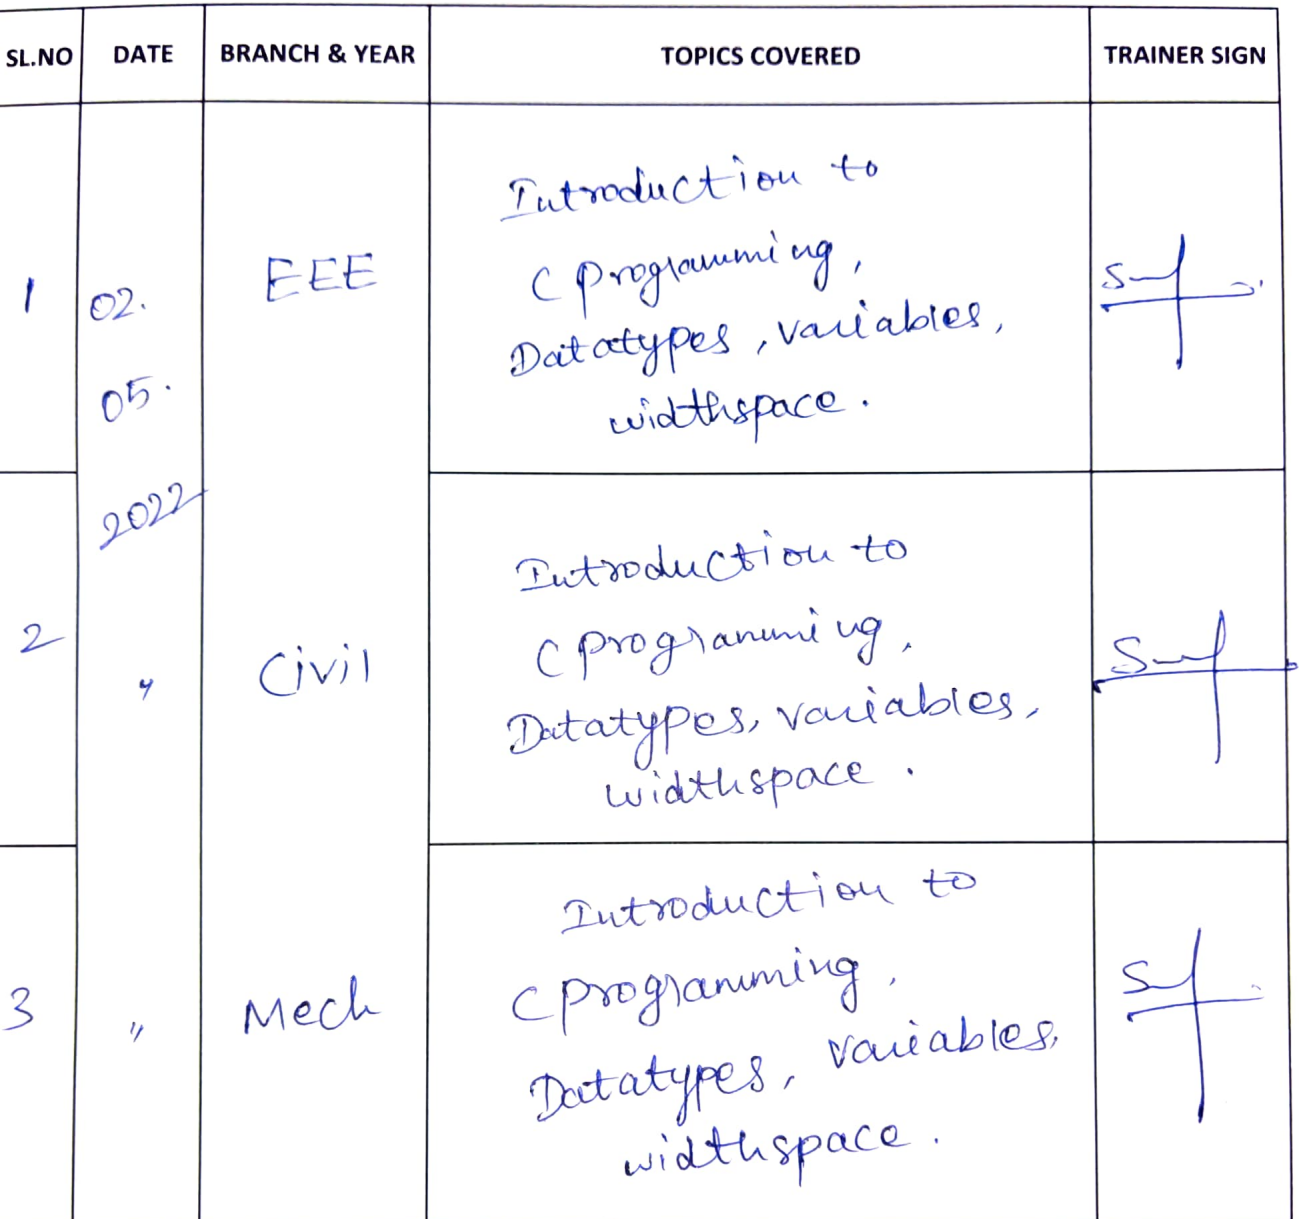 SL.NO DATE BRANCH & YEAR TOPICS COVERED TRAINER SIGN
Introduction to
1 02. EEE C programming,
Datatypes, variables,
05. widthspace.
2022
Introduction to
2 C programming,
" Civil Datatypes, variables,
widthspace.
Introduction to
3 " Mech C programming,
Datatypes, variables,
widthspace.